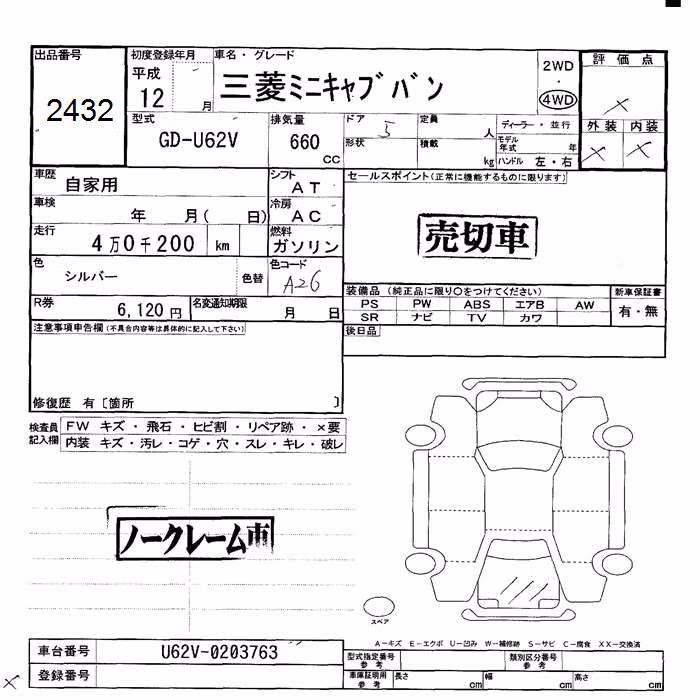 出品番号
2432
初度登録年月
平成
12 月
車名・グレード
三菱ミニキャブバン
2WD
・
4WD
評価点
×
外装 内装
× ×
型式
GD-U62V
排気量
660
cc
ドア
5
定員
人
形状
積載
kg
ディーラー・並行
モデル年式 年
ハンドル 左・右
車歴
自家用
シフト
AT
車検
年 月( 日)
冷房
AC
走行
4万0千200 km
燃料
ガソリン
色
シルバー
色替
色コード
A26
R券
6,120円
名変通知期限
月 日
セールスポイント(正常に機能するものに限ります)
売切車
装備品(純正品に限り○をつけてください)
PS PW ABS エアB AW
SR ナビ TV カワ
新車保証書
有・無
後日品
注意事項申告欄(不具合内容等は具体的に記入して下さい)
修復歴 有〔箇所 〕
検査員
記入欄
FW キズ・飛石・ヒビ割・リペア跡・×要
内装 キズ・汚レ・コゲ・穴・スレ・キレ・破レ
ノークレーム車
スペア
A-キズ E-エクボ U-凹み W-補修跡 S-サビ C-腐食 XX-交換済
車台番号
U62V-0203763
登録番号
×
型式指定番号
参考
類別区分番号
参考
車庫証明用
参考
長さ cm
幅 cm
高さ cm